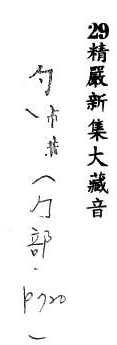 29精嚴新集大藏音
勺、市 (勹部.p720)